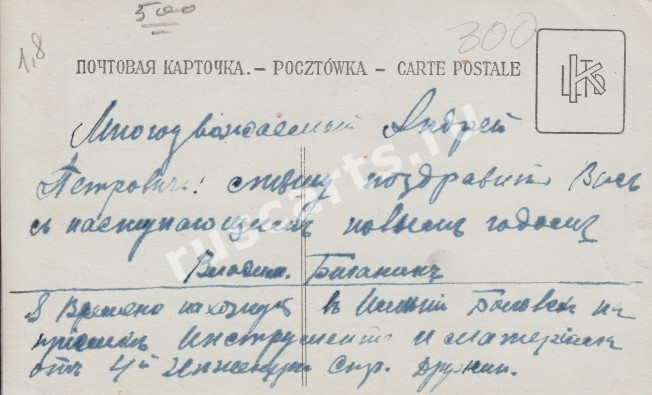 500
1,8
300
ПОЧТОВАЯ КАРТОЧКА. — POCZTÓWKA — CARTE POSTALE
Многоуважаемый Андрей
Петровичъ! спешу поздравить Васъ
съ наступающимъ новымъ годомъ
Владим.
Я временно нахожусь въ на
приемке Инструмента и материала
отъ 4й Инженерн Стр. Дружин.
ruscarts.ru